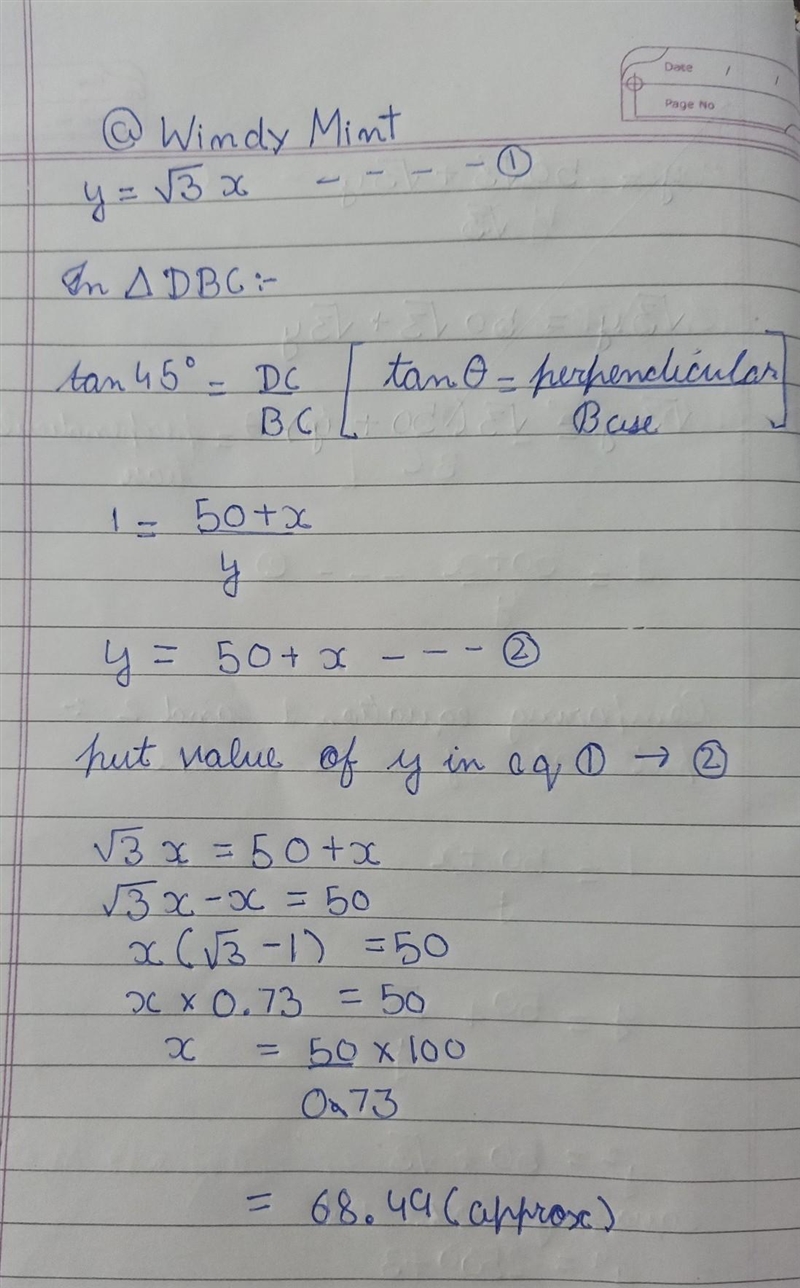 Date / /
Page No
@ Windy Mint
y = √3 x - - - - ①
In Δ DBC :-
tan 45° = DC/BC [ tan θ = perpendicular/Base ]
1 = 50+x/y
y = 50 + x - - - ②
put value of y in eq ① → ②
√3 x = 50 + x
√3 x - x = 50
x (√3 - 1) = 50
x × 0.73 = 50
x = 50 × 100/0.73
= 68.49 (approx)